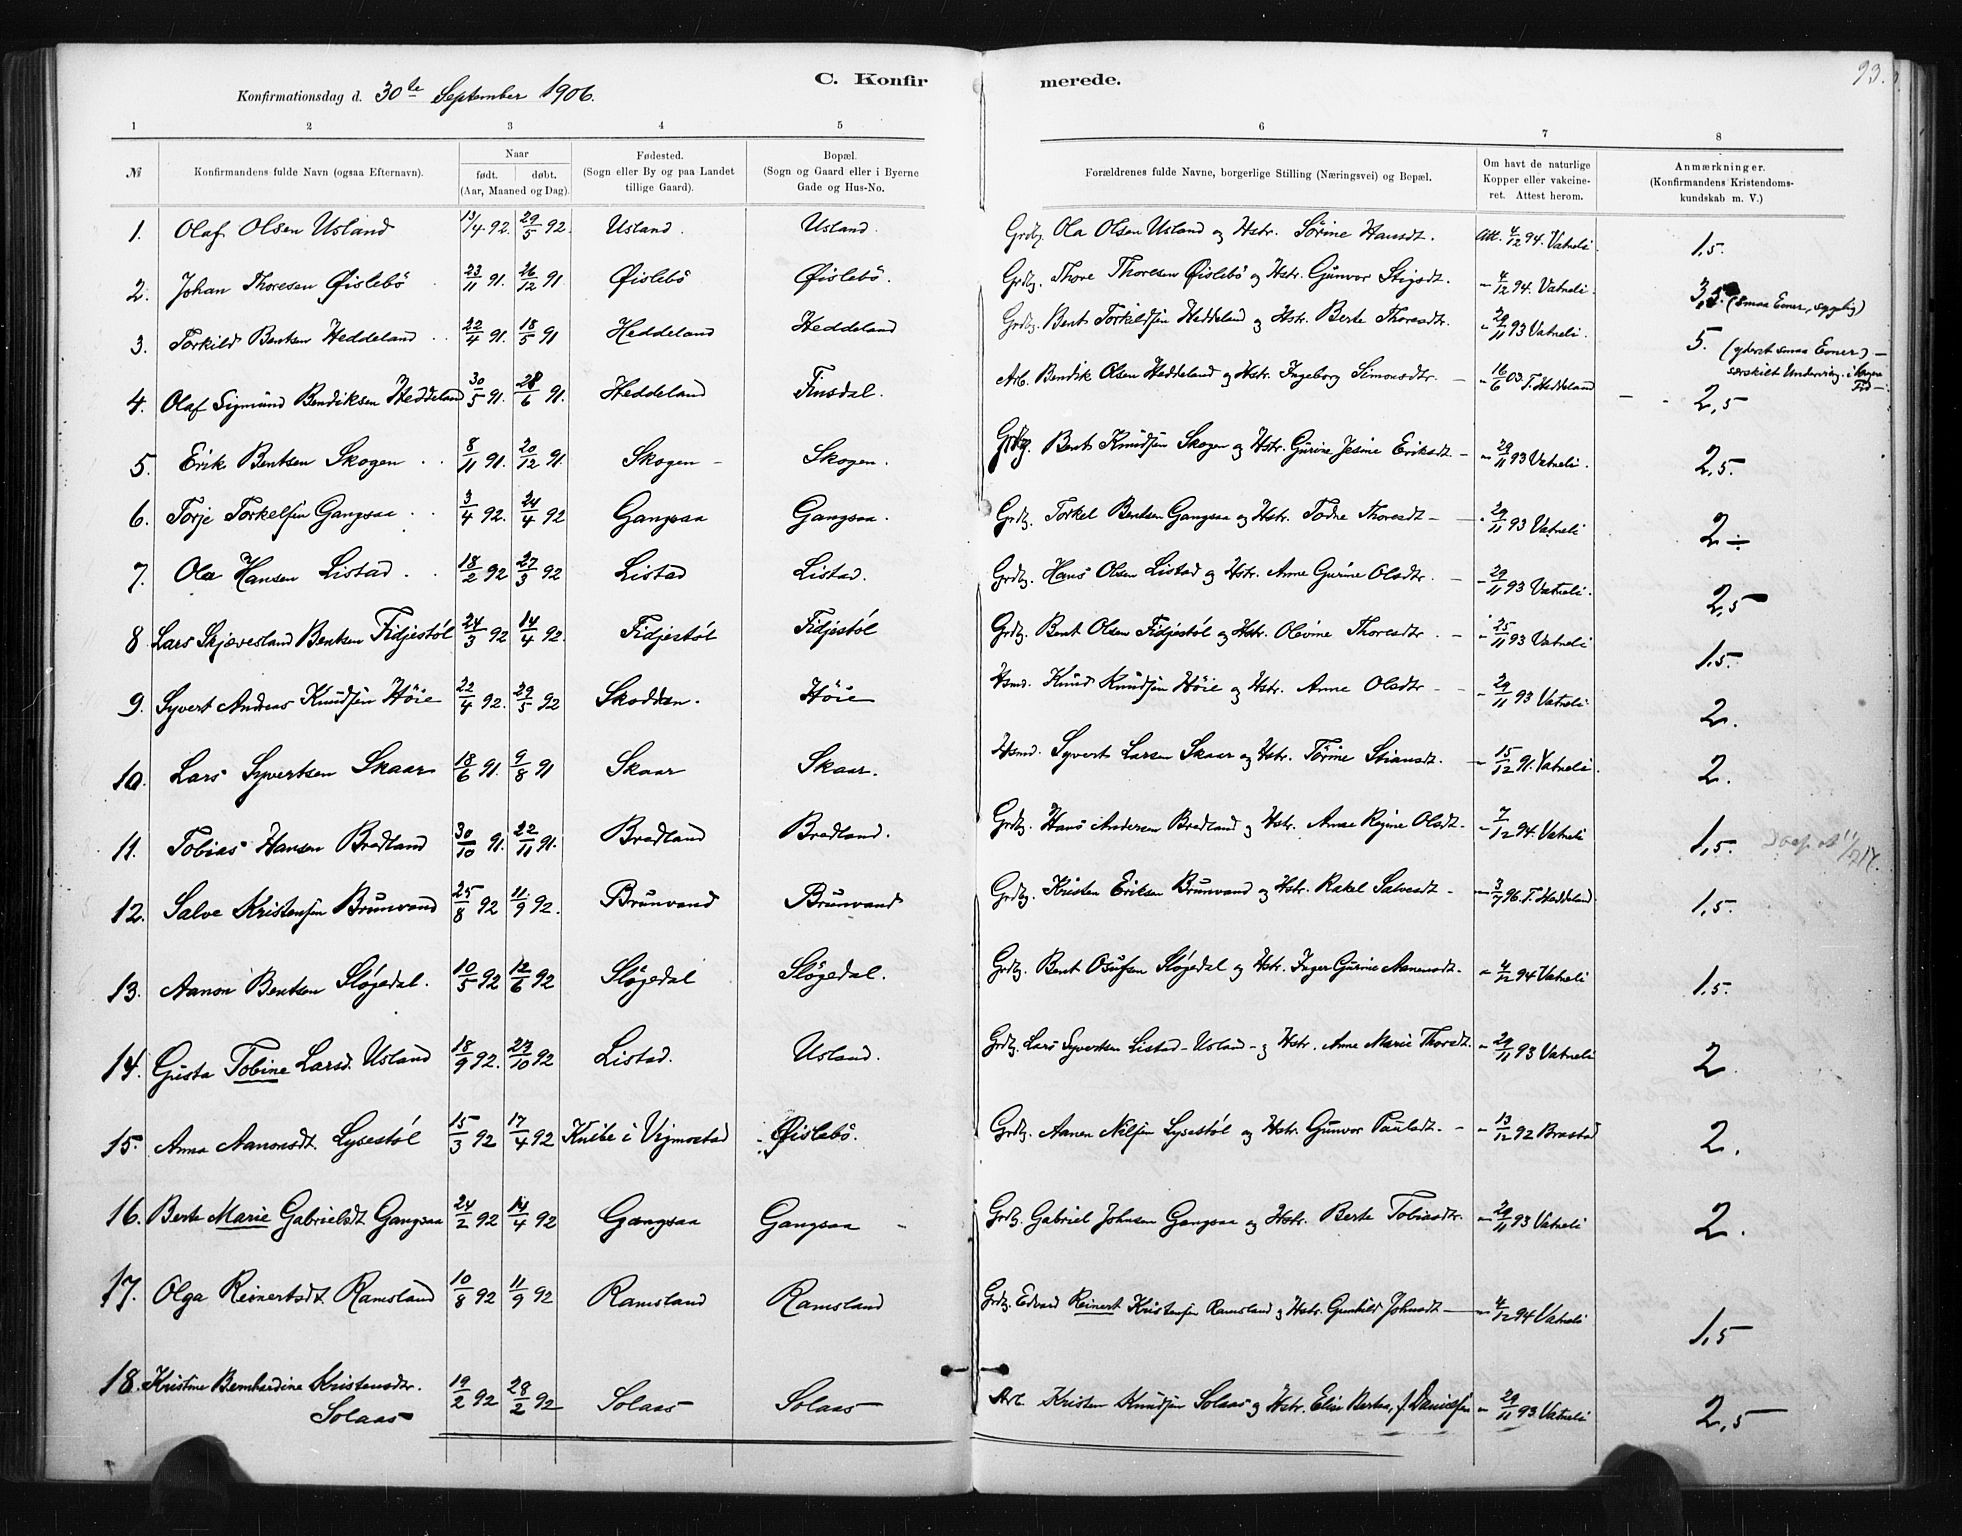 93.
C. Konfirmerede.
Konfirmationsdag d. 30te September 1906.
1 2 3 4 5 6 7 8
№ | Konfirmandens fulde Navn (ogsaa Efternavn). | Naar født. døbt. (Aar, Maaned og Dag). | Fødested. (Sogn eller By og paa Landet tillige Gaard). | Bopæl. (Sogn og Gaard eller i Byerne Gade og Hus-No. | Forældrenes fulde Navne, borgerlige Stilling (Næringsvei) og Bopæl. | Om havt de naturlige Kopper eller vakcineret. Attest herom. | Anmærkninger. (Konfirmandens Kristendomskundskab m. V.)
1. Olaf Olsen Usland | 13/4 92. | 29/5 92. | Usland. | Usland. | Grdbr. Ola Olsen Usland og Hstr. Sørine Hansdt. | Att. 4/12 94. Vatneli. | 1,5.
2. Johan Thoresen Øislebö | 23/11 91. | 26/12 91. | Øislebö | Øislebö. | Grdbr. Thore Thoresen Øislebö og Hstr. Gunvor Stigsdt. | - 4/12 94. Vatneli. | 3,5. (smaa Evner, sygelig)
3. Torkild Bentsen Heddeland | 22/4 91. | 18/5 91 | Heddeland | Heddeland | Grdbr. Bent Torkildsen Heddeland og Hstr. Berte Thoresdtr. | - 29/11 93 Vatneli. | 5. (yderst smaa Evner) - særskilt Underviisn. i længere Tid -
4. Olaf Sigmund Bendiksen Heddeland | 30/5 91. | 28/6 91. | Heddeland | Finsdal. | Arb. Bendik Olsen Heddeland og Hstr. Ingeborg Simonsdtr. | - 16/6 03. T. Heddeland | 2,5
5. Erik Bentsen Skogen | 8/11 91. | 20/12 91. | Skogen | Skogen. | Grdbr. Bent Knudsen Skogen og Hstr. Gurine Jesine Eriksdt. | - 29/11 93 Vatneli. | 2,5.
6. Torje Torkelsen Gangsaa | 3/4 92. | 24/4 92 | Gangsaa | Gangsaa. | Grdbr. Torkel Bentsen Gangsaa og Hstr. Todne Thoresdt | - 29/11 93 Vatneli | 2 ÷
7. Ola Hansen Listad | 18/2 92 | 27/3 92 | Listad | Listad. | Grdbr. Hans Olsen Listad og Hstr. Anne Gurine Olsdtr. | - 29/11 93 Vatneli. | 2,5
8 Lars Skjævesland Bentsen Fidjestöl | 24/3 92 | 14/4 92. | Fidjestöl | Fidjestöl | Grdbr. Bent Olsen Fidjestöl og Hstr. Olevine Thoresdtr. | - 25/11 93 Vatneli | 1,5.
9. Syvert Andreas Knudsen Höie | 22/4 92. | 29/5 92 | Skodden. | Höie | Hsmd. Knud Knudsen Höie og Hstr. Anne Olsdtr. | - 29/11 93 Vatneli | 2.
10. Lars Syvertsen Skaar | 18/6 91. | 9/8 91 | Skaar | Skaar. | Hsmd. Syvert Larsen Skaar og Hstr. Törine Stiansdt. | - 15/12 91. Vatneli. | 2.
11. Tobias Hansen Bredland | 30/10 91. | 22/11 91. | Bredland | Bredland. | Grdbr. Hans Andersen Bredland og Hstr. Anne Regine Olsdt. | - 7/12 94. Vatneli | 1,5.
12. Salve Kristensen Brunvand | 25/8 92 | 11/9 92. | Brunvand | Brunvand | Grdbr. Kristen Eriksen Brunvand og Hstr. Rakel Salvesdt | - 3/7 96. T. Heddeland. | 1,5.
13. Aanon Bentsen Slögedal. | 10/5 92 | 12/6 92 | Slögedal | Slögedal. | Grdbr. Bent Osufsen Slögedal og Hstr. Inger Gurine Aanensdt. | - 4/12 94 Vatneli | 1,5.
14. Gusta Tobine Larsd. Usland | 18/9 92. | 23/10 92 | Listad. | Usland. | Grdbr. Lars Syvertsen Listad - Usland - og Hstr. Anne Marie Thorsdt. | - 29/11 93 Vatneli | 2
15. Anna Aanonsdt. Lysestöl | 15/3 92 | 17/4 92 | Knibe i Vigmostad | Øislebö. | Grdbr. Aanen Nilsen Lysestöl og Hstr. Gunvor Paulsdt. | - 13/12 92 Brastad | 2.
16. Berte Marie Gabrielsdt Gangsaa | 24/2 92 | 14/4 92 | Gangsaa | Gangsaa | Grdbr. Gabriel Johnsen Gangsaa og Hstr. Berte Tobiasdtr. | - 29/11 93 Vatneli | 2.
17. Olga Reinertsdt Ramsland | 10/8 92 | 11/9 92 | Ramsland | Ramsland | Grdbr. Edvard Reinert Kristensen Ramsland og Hstr. Gunhild Johnsdt | - 4/12 94 Vatneli | 1,5
18. Kristine Bernhardine Kristensdtr. Solaas | 19/2 92 | 28/2 92 | Solaas | Solaas | Arb. Kristen Knudsen Solaas og Hstr. Elise Bertea, f. Danielsen | - 29/11 93 Vatneli | 2,5